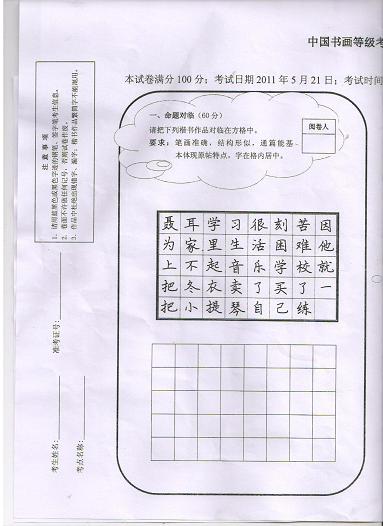 中国书画等级考
本试卷满分100分；考试日期2011年5月21日；考试时间
一、命题对临（60分）
请把下列楷书作品对临在方格中。
要求：笔画准确，结构形似，通篇能基
本体现原帖特点，字在格内居中。
阅卷人
聂耳学习很刻苦因
为家里生活困难他
上不起音乐学校就
把冬衣卖了买了一
把小提琴自己练
注意事项
1、请用蓝黑色或黑色字迹的钢笔、签字笔考生信息。
2、卷面不许做任何记号，否则试卷作废。
3、作品中杜绝出现错字、漏字；楷书作品繁简字不能混用。
准考证号：
考生姓名：
考点名称：